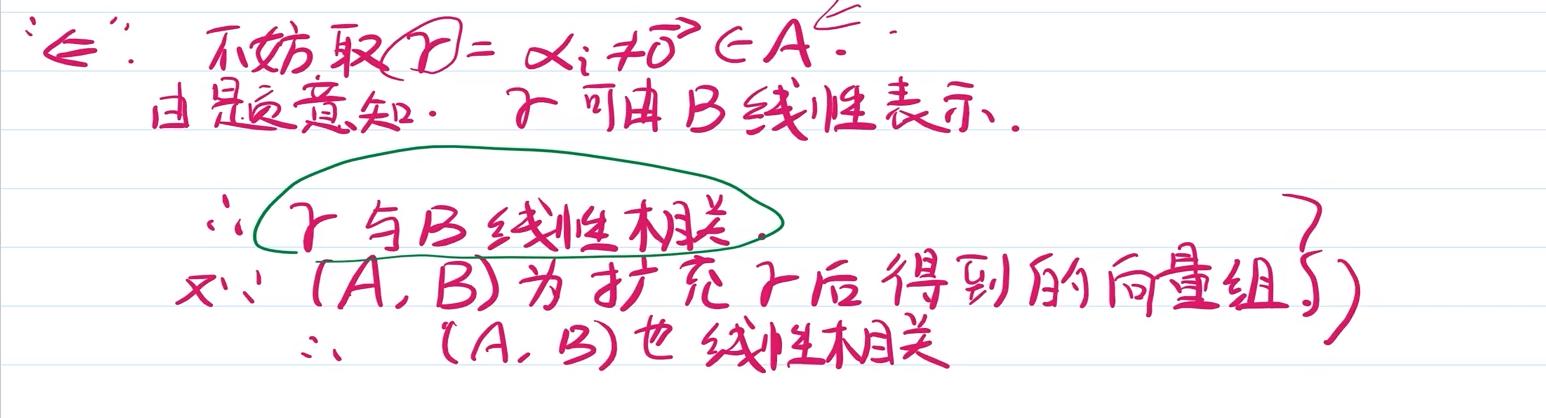 "⇐": 不妨取γ = αᵢ ≠ 0⃗ ∈ A.
由题意知. γ可由B线性表示.
∴ γ与B线性相关.
又∵ (A, B)为扩充γ后得到的向量组
∴ (A, B)也线性相关